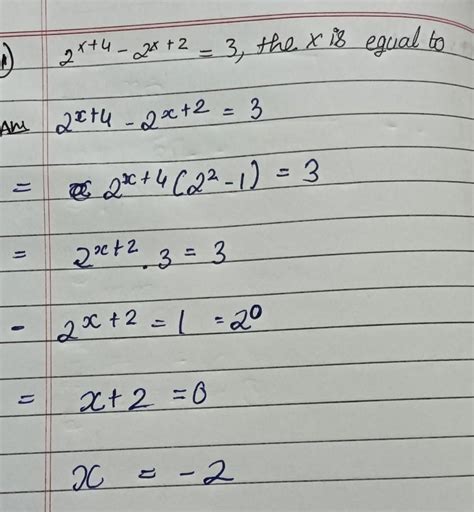 1) 2^{x+4} - 2^{x+2} = 3, the x is equal to
Ans 2^{x+4} - 2^{x+2} = 3
= 2^{x+4} (2^2 - 1) = 3
= 2^{x+2} . 3 = 3
- 2^{x+2} = 1 = 2^0
= x+2 = 0
x = -2